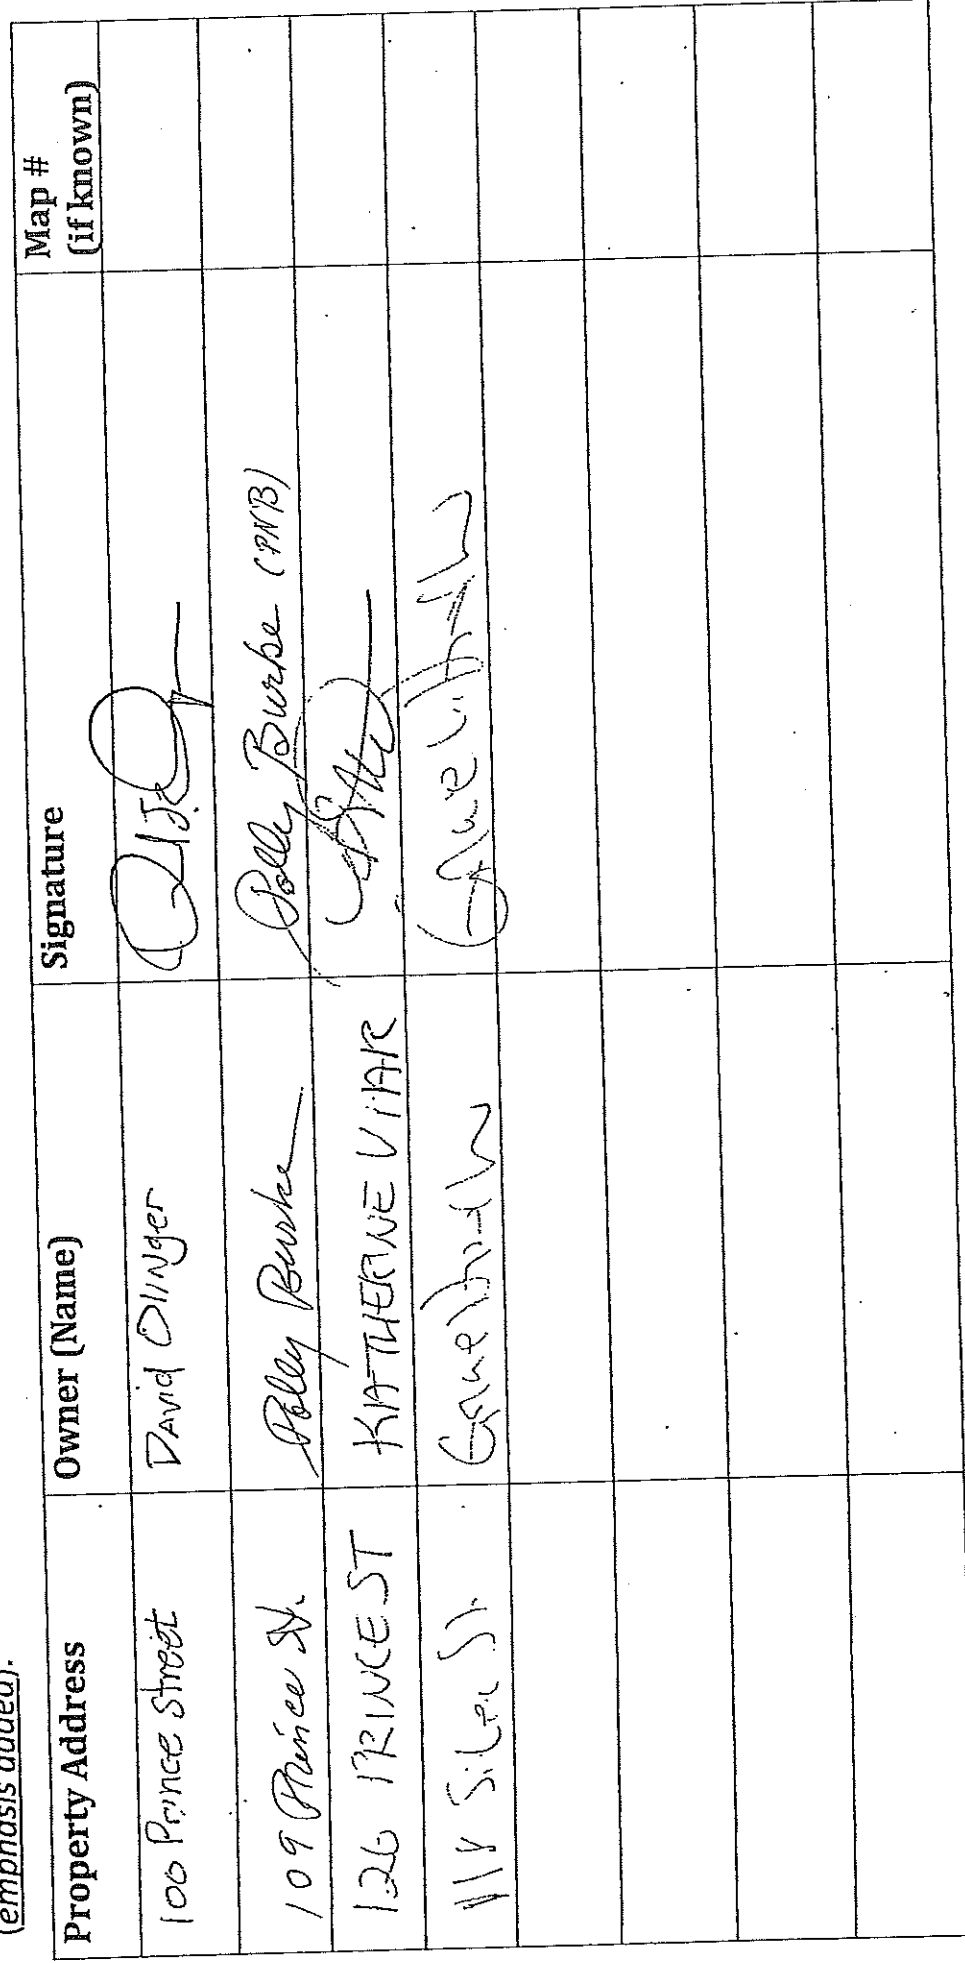 (emphasis added).
Property Address Owner (Name) Signature Map #
(if known)
100 Prince Street David Olinger
109 Prince St. Polly Burke Polly Burke (PNB)
126 PRINCE ST KATHERINE VITAR
118 St.